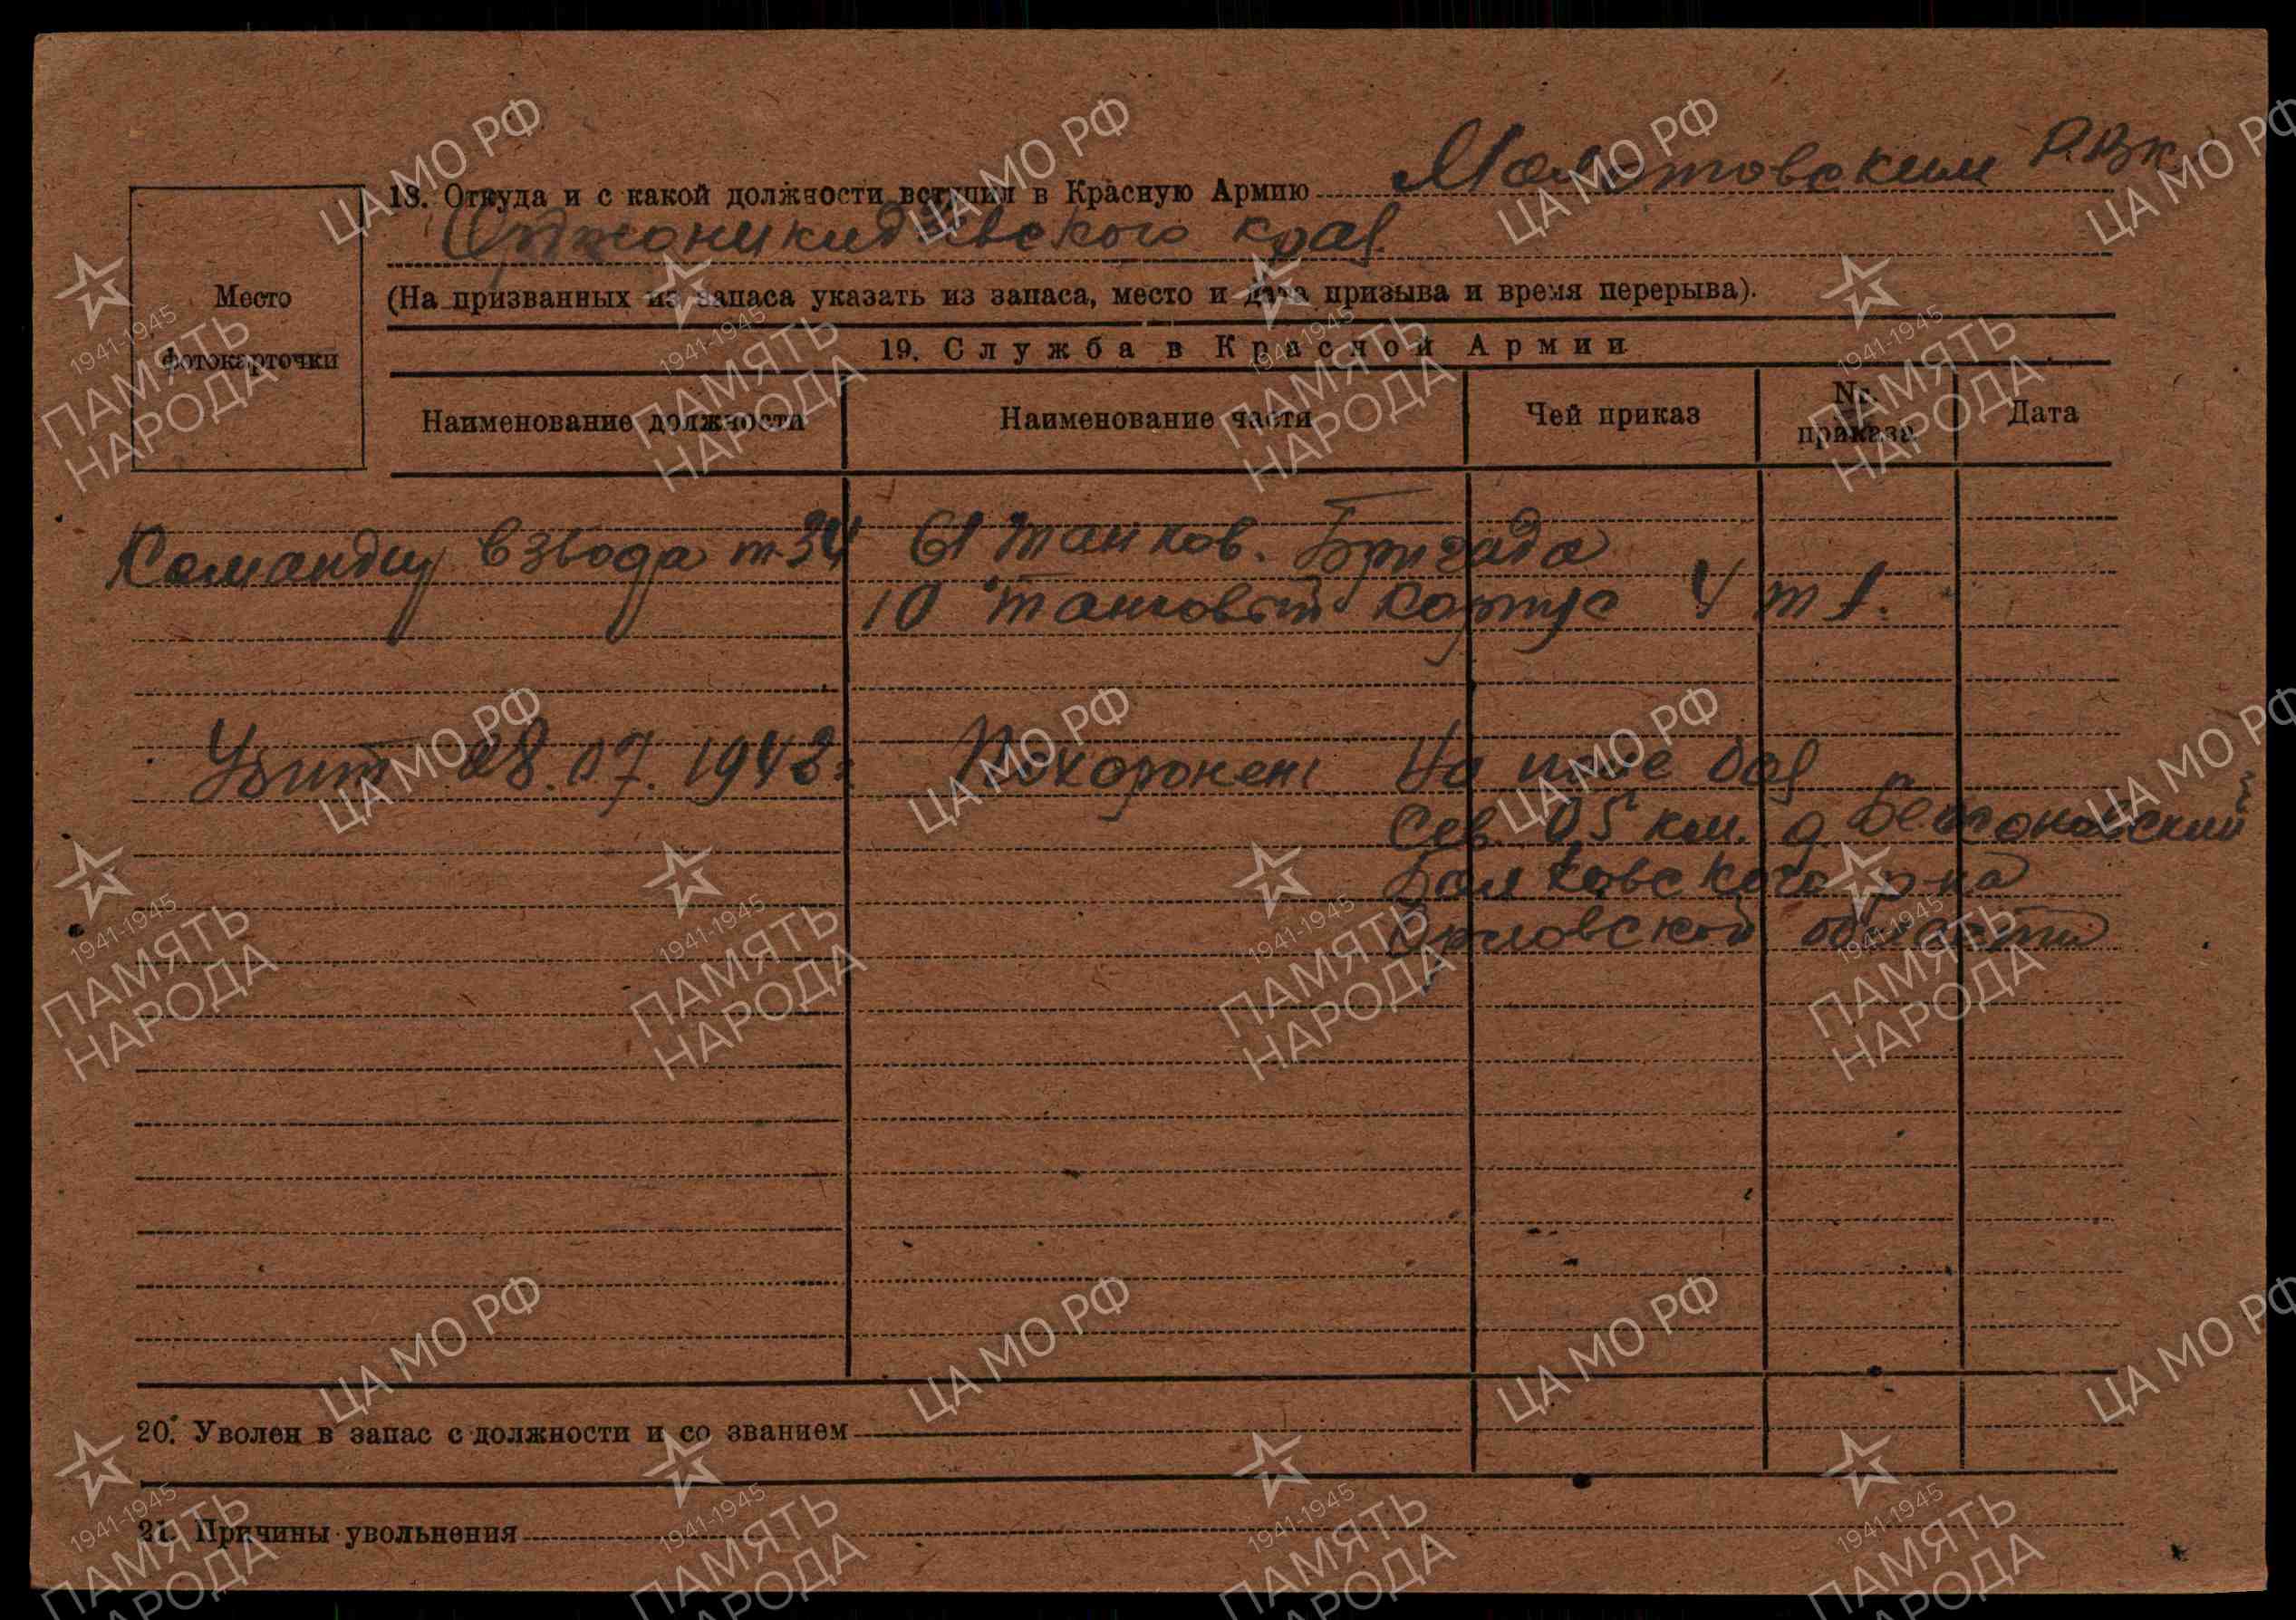 Место
фотокарточки
18. Откуда и с какой должности вступил в Красную Армию Молотовским РВК
Орджоникидзевского края.
(На призванных из запаса указать из запаса, место и дата призыва и время перерыва).
19. Служба в Красной Армии
Наименование должности Наименование части Чей приказ №. приказа Дата
Командир взвода т-34 61 танков. Бригада
10 танковый корпус 4 т А.
Убит 28.07.1943г. Похоронен: На поле боя
Сев. 0,5 км. д.
Болховского р-на
Орловской области
20. Уволен в запас с должности и со званием
21. Причины увольнения
ЦА МО РФ
1941-1945
ПАМЯТЬ
НАРОДА